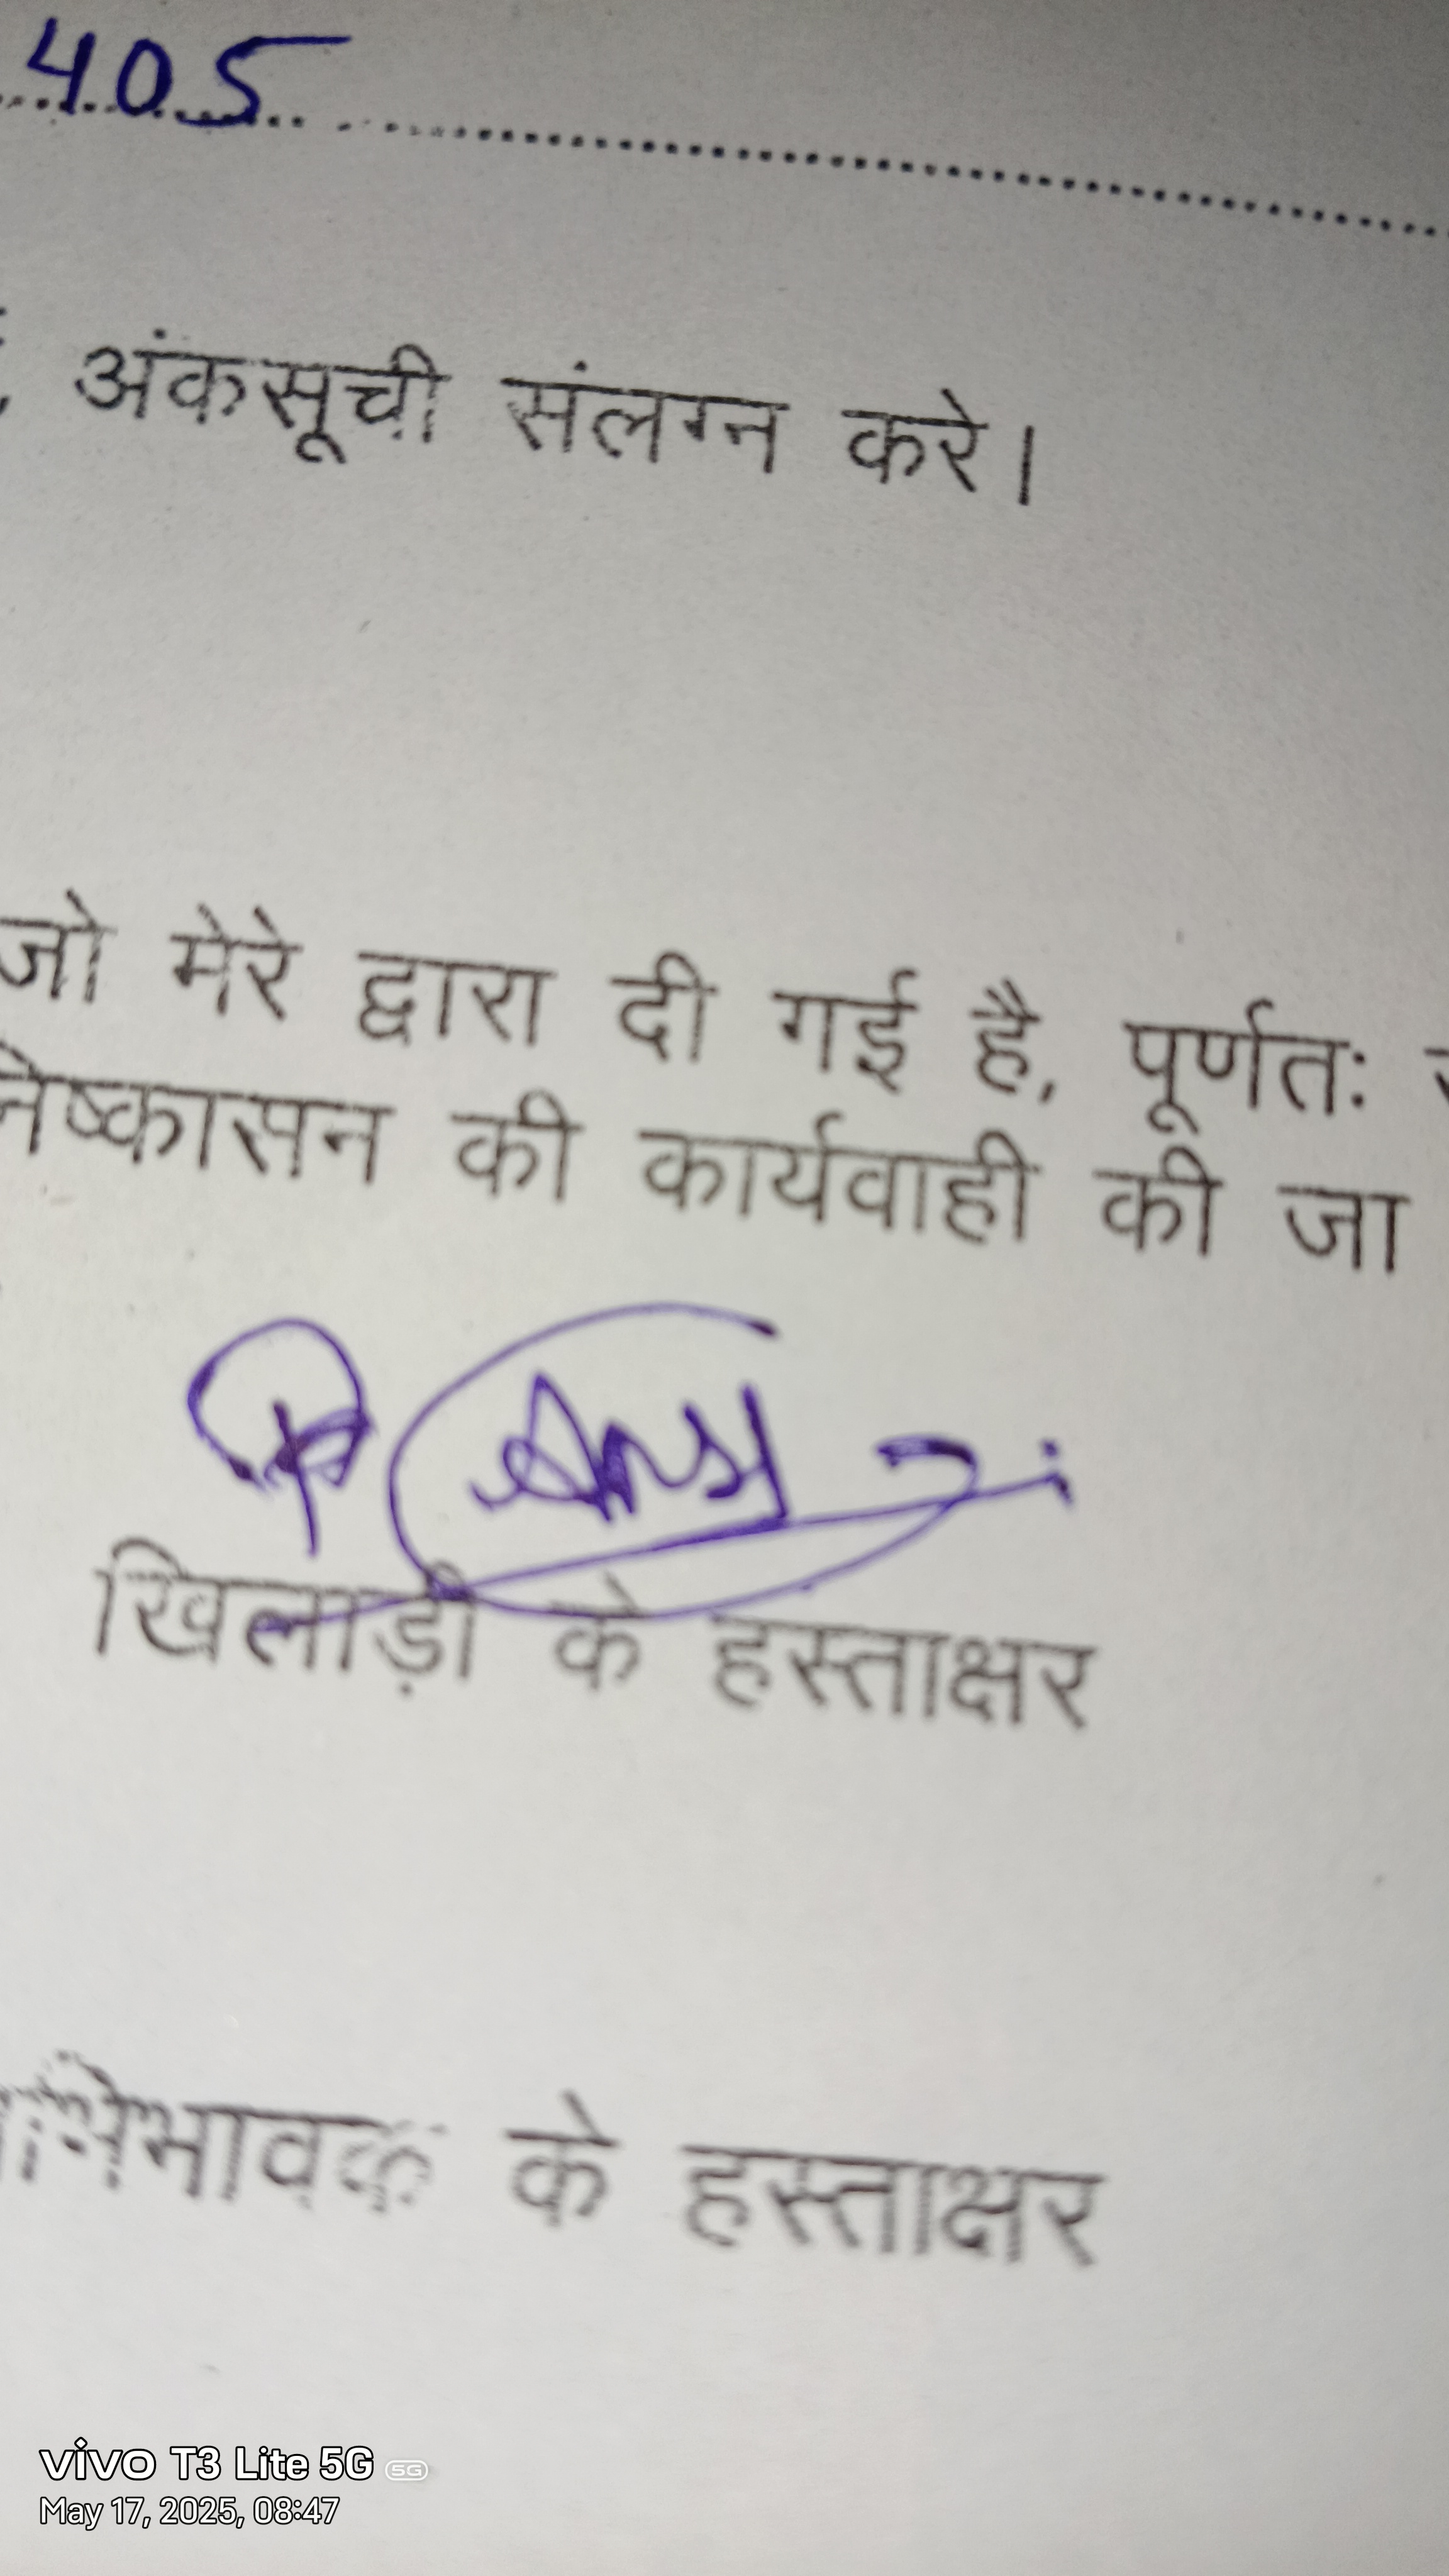 405
, अंकसूची संलग्न करे।
जो मेरे द्वारा दी गई है, पूर्णतः
निष्कासन की कार्यवाही की जा
खिलाड़ी के हस्ताक्षर
भिभावक के हस्ताक्षर
vivo T3 Lite 5G 5G
May 17, 2025, 08:47